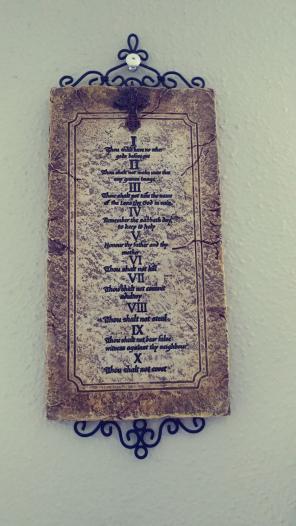 I
Thou shalt have no other
gods before me
II
Thou shalt not make unto thee
any graven image
III
Thou shalt not take the name
of the Lord thy God in vain
IV
Remember the sabbath day,
to keep it holy
V
Honour thy father and thy
mother
VI
Thou shalt not kill
VII
Thou shalt not commit
adultery
VIII
Thou shalt not steal
IX
Thou shalt not bear false
witness against thy neighbour
X
Thou shalt not covet